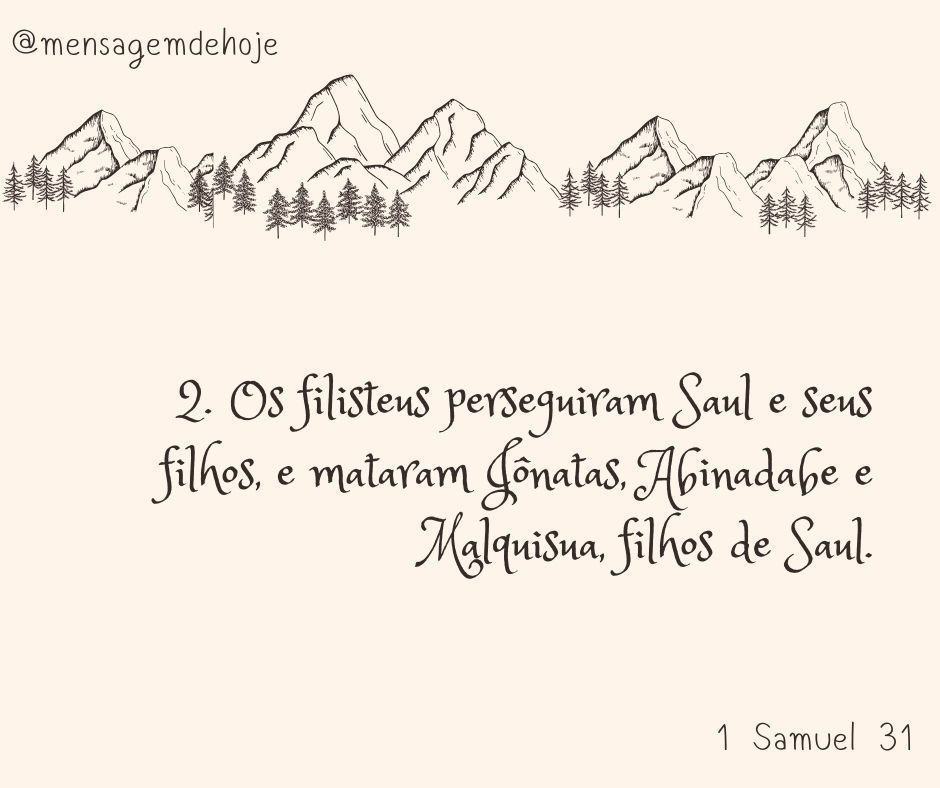 @mensagemdehoje
2. Os filisteus perseguiram Saul e seus
filhos, e mataram Jônatas, Abinadabe e
Malquisua, filhos de Saul.
1 Samuel 31